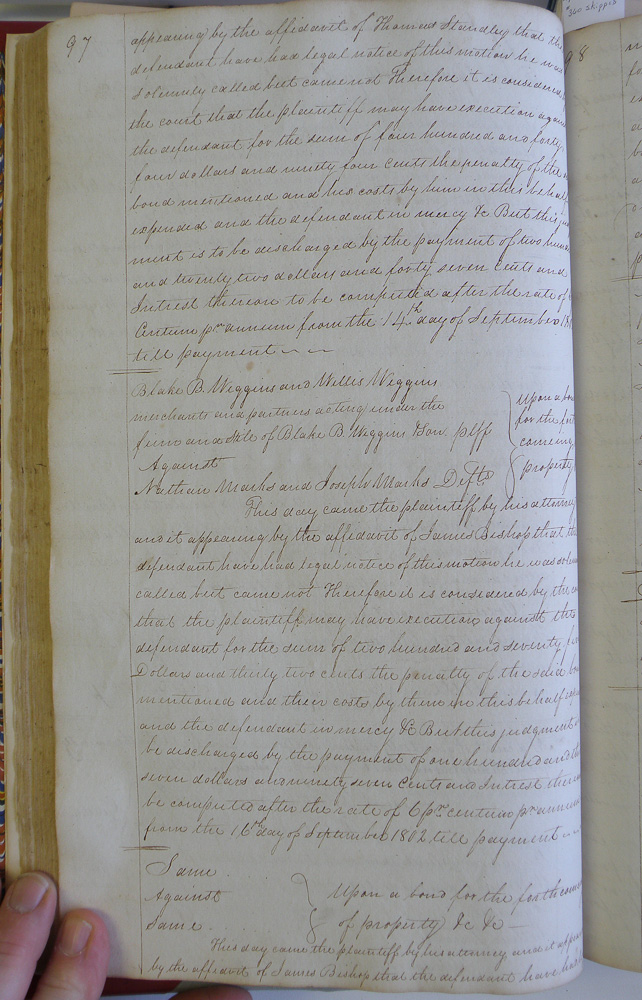 97
appearing by the affidavit of Thomas Standley that the
defendant have had legal notice of this motion he was
solemnly called but came not Therefore it is considered
the court that the plaintiff may have execution against
the defendant for the sum of four hundred and forty
four dollars and ninety four cents the penalty of the
bond mentioned and his costs by him in this behalf
expended and the defendant in mercy &c But this
ment is to be discharged by the payment of two
and twenty two dollars and forty seven cents and
Intrest thereon to be computed after the rate of
Centum pr annum from the 14th day of September
till payment
Blake B. Wiggins and Willis Wiggins
merchants and partners acting under the
firm and stile of Blake B. Wiggins &Son plffs
Against
Nathan Marks and Joseph Marks Defts
Upon a
for the
coming
property
This day came the plaintiff by his attorney
and it appearing by the affidavit of James Bishop that
defendant have had legal notice of this motion he was
called but came not Therefore it is considered by the
that the plaintiff may have execution against the
defendant for the sum of two hundred and seventy
Dollars and thirty two cents the penalty of the said
mentioned and their costs by them in this behalf
and the defendant in mercy &c But this judgment
be discharged by the payment of one hundred and
seven dollars and ninety seven Cents and Intrest
be computed after the rate of 6 pr centum pr annum
from the 16th day of September 1812 till payment
Same
Against
Same
Upon a bond for the
of property &c &c
This day came the plaintiff by his attorney and it
by the affidavit of James Bishop that the defendant have had
98